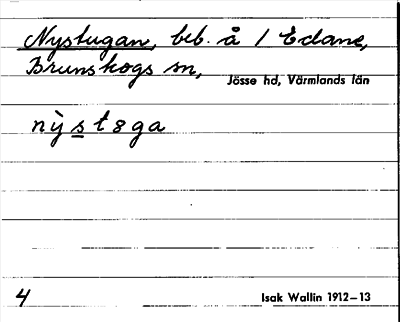 Nystugan, beb. å 1 Edane,
Brunskogs sn,
Jösse hd, Värmlands län
nỳstɞga
4
Isak Wallin 1912–13